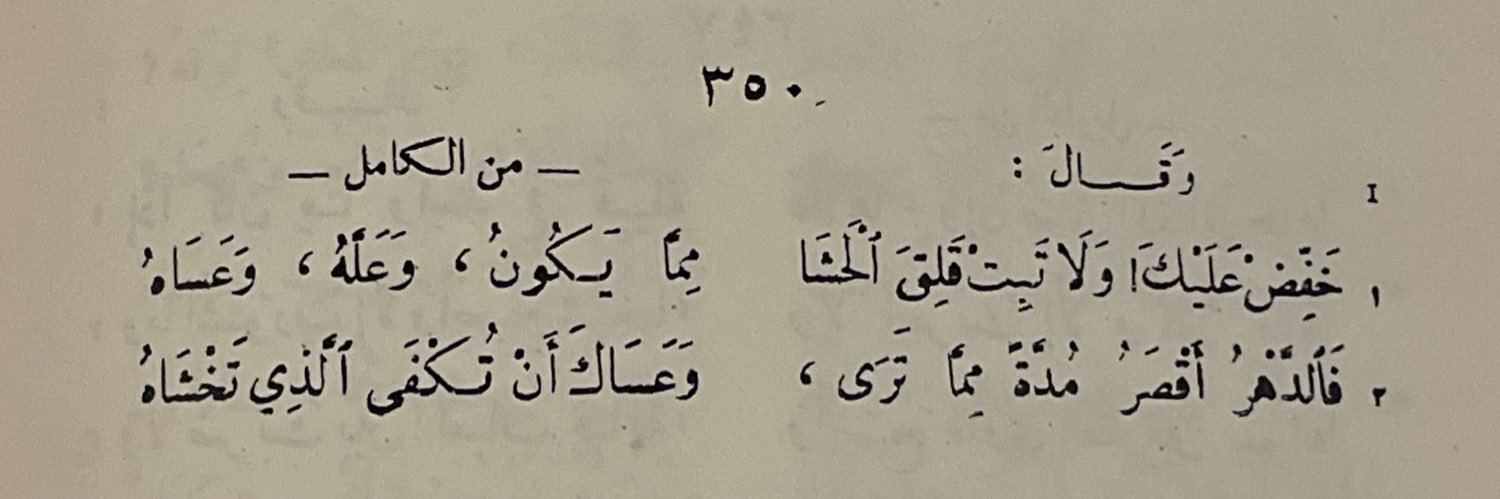 ٣٥٠
I وَقَــالَ : — من الكامل —
١ خَفِّضْ عَلَيْكَ! وَلَا تَبِتْ قَلِقَ ٱلْحَشَا مِمَّا يَكُونُ ، وَعَلَّهُ ، وَعَسَاهُ
٢ فَٱلدَّهْرُ أَقْصَرُ مُدَّةً مِمَّا تَرَى ، وَعَسَاكَ أَنْ تُكْفَى ٱلَّذِي تَخْشَاهُ